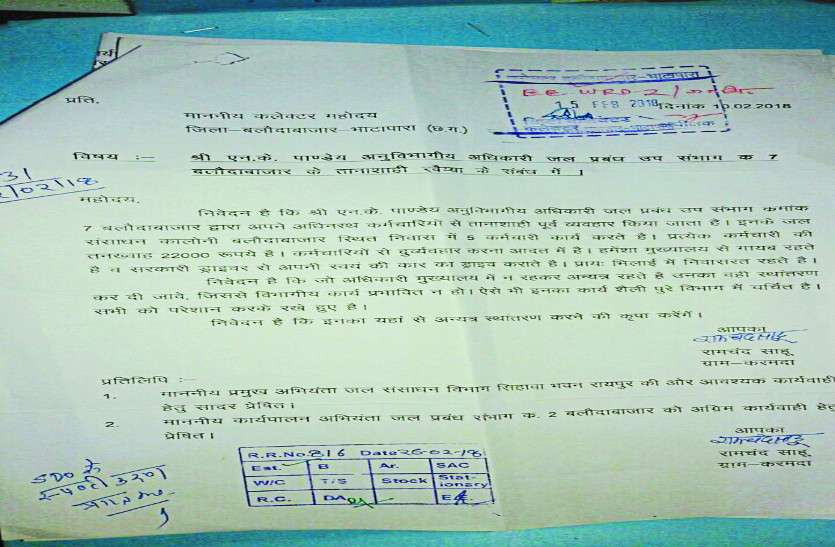 प्रति,
माननीय कलेक्टर महोदय
जिला–बलौदाबाजार–भाटापारा (छ.ग.)
EE WRD-2/
15 FEB 2018
दिनांक 19.02.2018
31
/02/18
विषय :– श्री एन.के. पाण्डेय अनुविभागीय अधिकारी जल प्रबंध उप संभाग क 7
बलौदाबाजार के तानाशाही रवैय्या के संबंध में।
महोदय,
निवेदन है कि श्री एन.के. पाण्डेय अनुविभागीय अधिकारी जल प्रबंध उप संभाग कमांक
7 बलौदाबाजार द्वारा अपने अधिनस्थ कर्मचारियों से तानाशाही पूर्व व्यवहार किया जाता है। इनके जल
संसाधन कालोनी बलौदाबाजार स्थित निवास में 5 कर्मचारी कार्य करते है। प्रत्येक कर्मचारी की
तनख्वाह 22000 रूपये है। कर्मचारियों से दुर्व्यवहार करना आदत में है। हमेशा मुख्यालय से गायब रहते
है व सरकारी ड्राइवर से अपनी स्वयं की कार का ड्राइव कराते है। प्रायः भिलाई में निवासरत रहते है।
निवेदन है कि जो अधिकारी मुख्यालय में न रहकर अन्यत्र रहते है उनका वही स्थांतरण
कर दी जावे, जिससे विभागीय कार्य प्रभावित न हो। ऐसे भी इनका कार्य शैली पुरे विभाग में चर्चित है।
सभी को परेशान करके रखे हुए है।
निवेदन है कि इनका यहां से अन्यत्र स्थांतरण करने की कृपा करेंगें।
आपका
रामचंद साहू
रामचंद साहू
ग्राम–करमदा
प्रतिलिपि :–
1. माननीय प्रमुख अभियंता जल संसाधन विभाग सिहावा भवन रायपुर की ओर आवश्यक कार्यवाही
हेतु सादर प्रेषित।
2. माननीय कार्यपालन अभियंता जल प्रबंध संभाग क. 2 बलौदाबाजार को अग्रिम कार्यवाही हेतु
प्रेषित।
आपका
रामचंद साहू
रामचंद साहू
ग्राम–करमदा
R.R.No 816 Date 26-02-18
Est. B Ar. SAC
W/C T/S Stock Stat-ionary
R.C. DA E.E.
SDO के